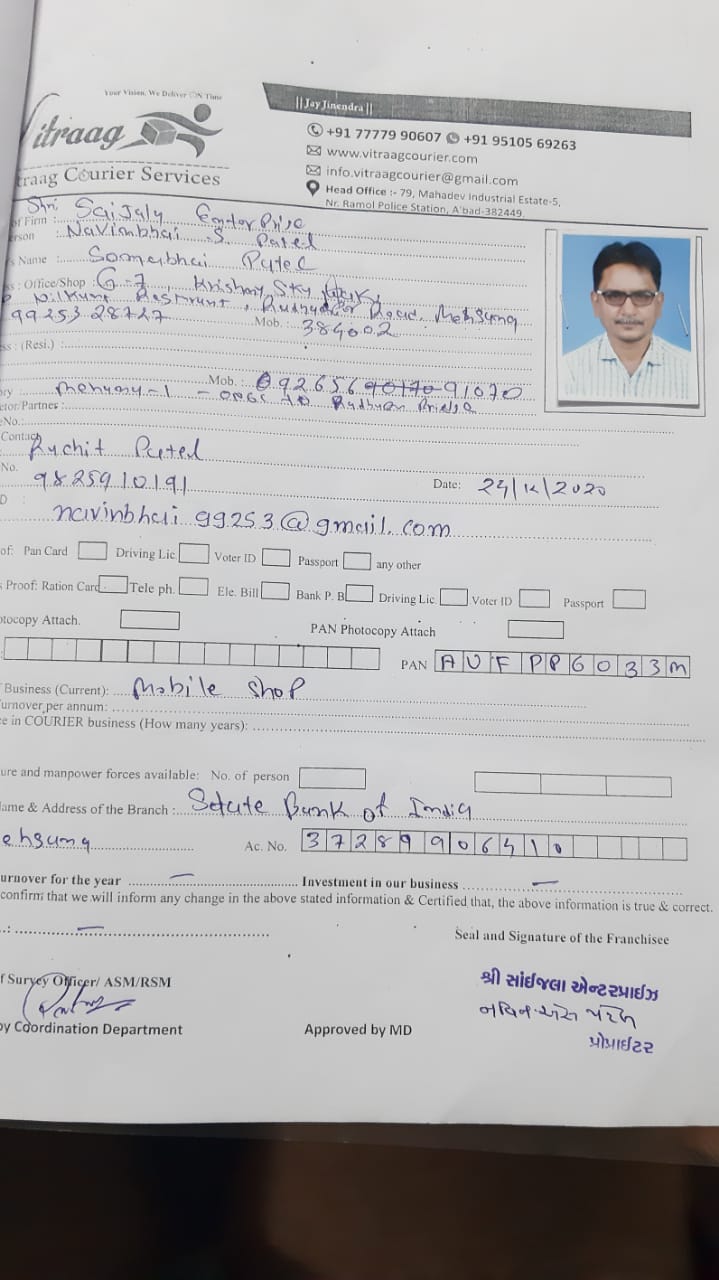 Your Vision, We Deliver ON Time
|| Jay Jinendra ||
Vitraag
+91 77779 90607 +91 95105 69263
www.vitraagcourier.com
info.vitraagcourier@gmail.com
traag Courier Services
Head Office :- 79, Mahadev Industrial Estate-5,
Nr. Ramol Police Station, A'bad-382449.
of Firm : Shri SaiJaly EnterPrise
erson : Navinbhai S. Patel
s Name : Somabhai Patel
s : Office/Shop : G-7, Krishna Sky
Mehsana
99253 28727 Mob. : 384002
ss : (Resi.) :
Mob. :
ory
ctor/Partner :
No. :
Contact Ruchit Patel
No. 9825910191 Date: 24/12/2020
D : navinbhai99253@gmail.com
of: Pan Card Driving Lic. Voter ID Passport any other
s Proof: Ration Card Tele ph. Ele. Bill Bank P. B. Driving Lic. Voter ID Passport
otocopy Attach. PAN Photocopy Attach
PAN AUFPP6033M
Business (Current): Mobile Shop
urnover per annum:
e in COURIER business (How many years):
ure and manpower forces available: No. of person
ame & Address of the Branch : Setate Bank of India
ehsana Ac. No. 37289906410
urnover for the year — Investment in our business —
confirm that we will inform any change in the above stated information & Certified that, the above information is true & correct.
.: —
Seal and Signature of the Franchisee
f Survey Officer/ ASM/RSM
શ્રી સાંઈજલા એન્ટરપ્રાઈઝ
by Coordination Department Approved by MD
પ્રોપ્રાઈટર